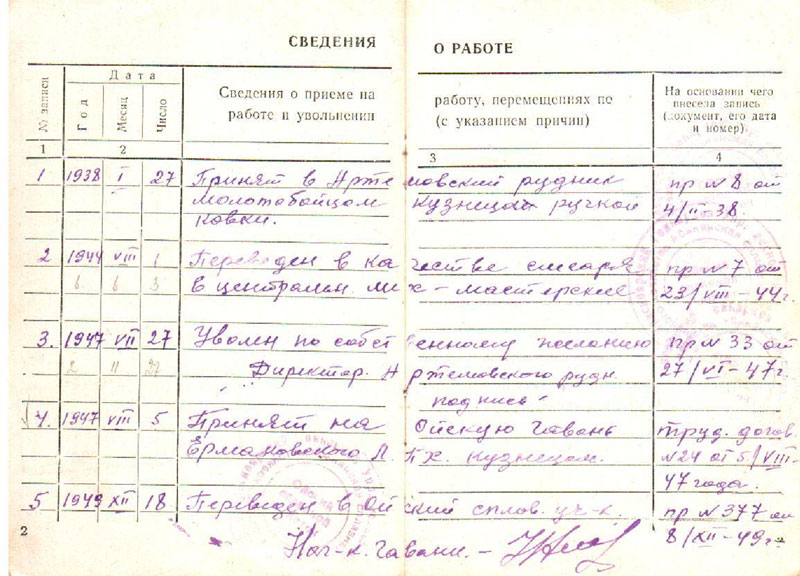 СВЕДЕНИЯ О РАБОТЕ
№ записи
Дата
Год
Месяц
Число
Сведения о приеме на работу, перемещениях по
работе и увольнении (с указанием причин)
На основании чего
внесена запись
(документ, его дата
и номер)
1 2 3 4
1 1938 I 27 Принят в Артемовский рудник пр N 8 от
молотобойцом кузницы ручной 4/II 38.
ковки.
2 1944 VIII 1 Переведен в качестве слесаря пр N 7 от
в централн. мех-мастерские 23/VIII-44г.
3. 1947 VII 27 Уволен по собственному желанию пр N 33 от
Директор. Артемовского рудн. 27/VI-47г.
подпись
4. 1947 VIII 5 Принят на Ойскую Гавань труд. догов.
Ермаковского Л.П.Х. кузнецом. N24 от 5/VIII-
47 года.
5 1949 XII 18 Переведен в Ойский сплов. уч-к. пр N 377 от
Нач-к. Гавани. - 8/XII-49г.
2